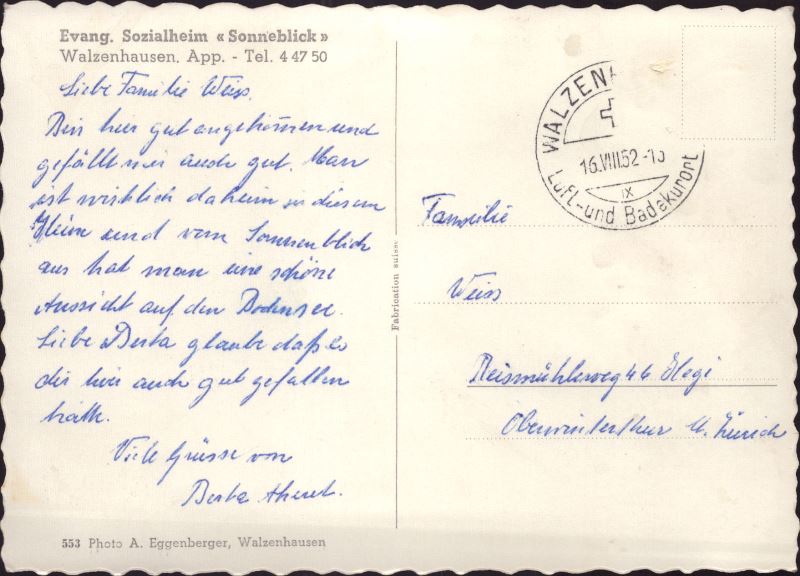 Evang. Sozialheim «Sonneblick»
Walzenhausen, App. - Tel. 4 47 50
Liebe Familie Weiss.
Bin hier gut angekommen und
gefällt mir auch gut. Man
ist wirklich daheim in diesem
Heim und vom Sonnenblick
aus hat man eine schöne
Aussicht auf den Bodensee.
Liebe Berta glaube daß es
dir hier auch gut gefallen
hätte.
Viele Grüsse von
Berta
553 Photo A. Eggenberger, Walzenhausen
Fabrication suisse
WALZEN
16.VIII.52-1
IX
Luft- und Badekurort
Familie
Weiss
Reismühleweg 46 Hegi
Oberwinterthur Kt. Zürich